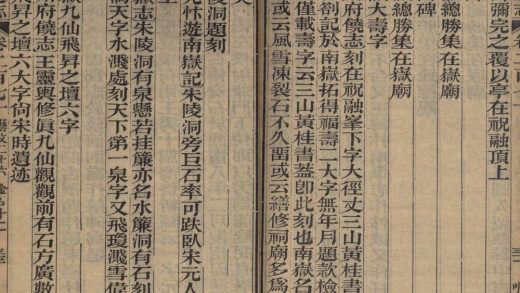 彌完之覆以亭在祝融頂上
總勝集在嶽廟
碑
總勝集在嶽廟
大壽字
府僥志刻在祝融峯下字大徑丈三山黃桂書
劄記於南嶽拓得福壽二大字無年月題款檢
僅載壽字云三山黃桂書蓋卽此刻也南嶽名
或云風雪凍裂石不久畱或云繕修祠廟多爲
文
陵洞題刻
忭遊南嶽記朱陵洞旁巨石率可趺臥宋元人
嶽志朱陵洞有泉懸若挂簾亦名水簾洞有石刻
文字水濺處刻天下第一泉字又飛瓊濺雪偉
嶽九仙飛昇之壇六字
府僥志王靈輿修眞九仙觀觀前有石方廣數
昇之壇六大字尙宋時遺迹
卷二百七 藝文二十六 金石十二